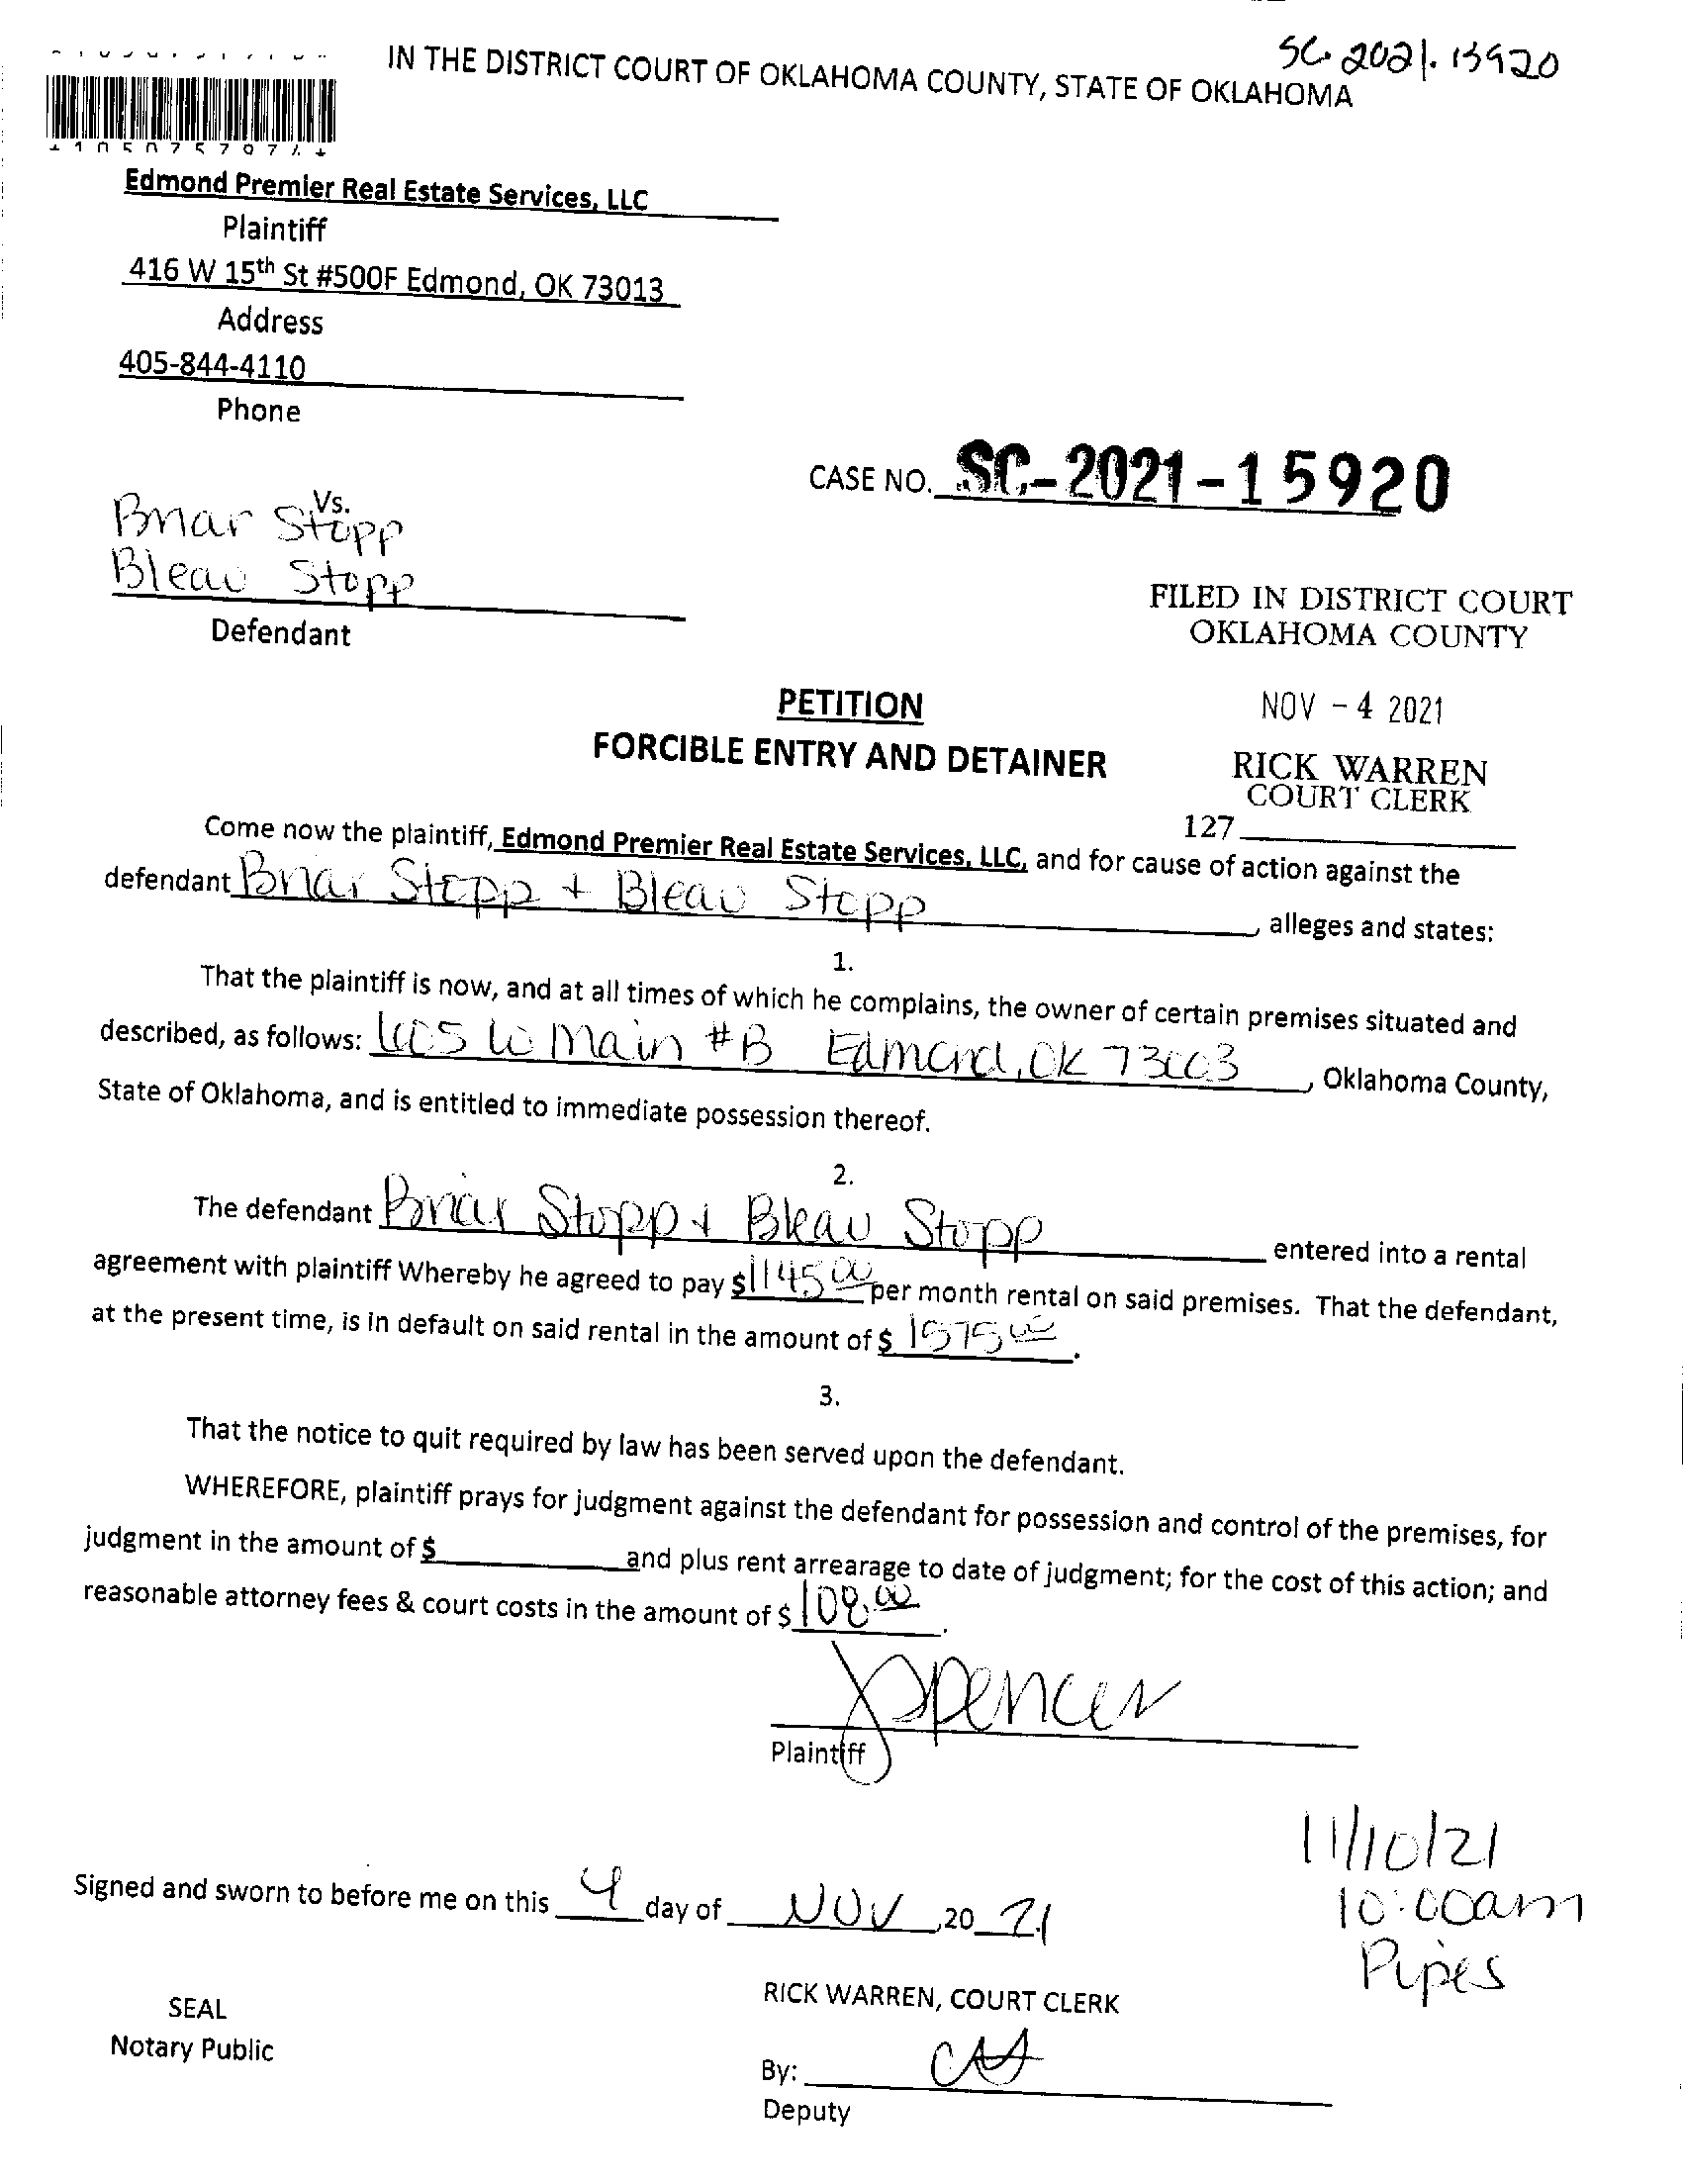 SC-2021-15920
IN THE DISTRICT COURT OF OKLAHOMA COUNTY, STATE OF OKLAHOMA
Edmond Premier Real Estate Services, LLC
Plaintiff
416 W 15th St #500F Edmond, OK 73013
Address
405-844-4110
Phone
CASE NO. SC-2021-15920
Vs.
Briar Stopp
Bleau Stopp
Defendant
FILED IN DISTRICT COURT
OKLAHOMA COUNTY
PETITION
NOV - 4 2021
FORCIBLE ENTRY AND DETAINER
RICK WARREN
COURT CLERK
127
Come now the plaintiff, Edmond Premier Real Estate Services, LLC, and for cause of action against the
defendant Briar Stopp + Bleau Stopp, alleges and states:
1.
That the plaintiff is now, and at all times of which he complains, the owner of certain premises situated and
described, as follows: W Main #B Edmond, OK 73003, Oklahoma County,
State of Oklahoma, and is entitled to immediate possession thereof.
2.
The defendant Briar Stopp + Bleau Stopp entered into a rental
agreement with plaintiff Whereby he agreed to pay $1145.00 per month rental on said premises. That the defendant,
at the present time, is in default on said rental in the amount of $ 1575.00.
3.
That the notice to quit required by law has been served upon the defendant.
WHEREFORE, plaintiff prays for judgment against the defendant for possession and control of the premises, for
judgment in the amount of $ and plus rent arrearage to date of judgment; for the cost of this action; and
reasonable attorney fees & court costs in the amount of $ 108.00.
JSpencer
Plaintiff
11/10/21
10:00am
Pipes
Signed and sworn to before me on this 4 day of NOV, 20 21
RICK WARREN, COURT CLERK
SEAL
Notary Public
By:
Deputy